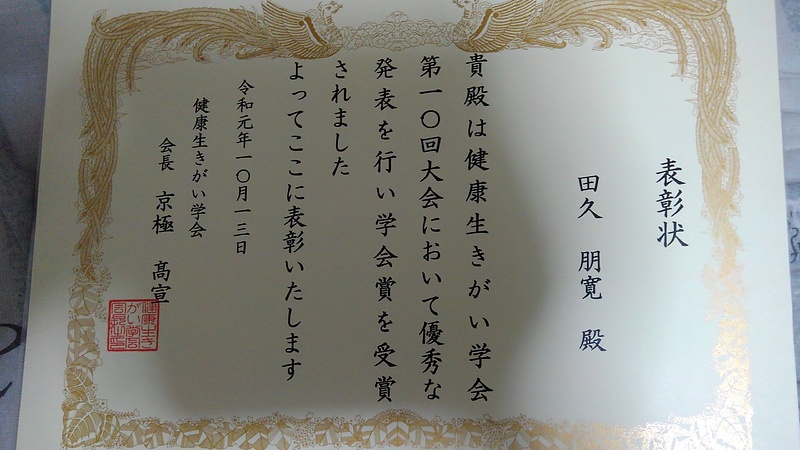 表彰状
田久 朋寛 殿
貴殿は健康生きがい学会
第一〇回大会において優秀な
発表を行い学会賞を受賞
されました
よってここに表彰いたします
令和元年一〇月一三日
健康生きがい学会
会長 京極 髙宣
健康生き
がい学会
会長之印